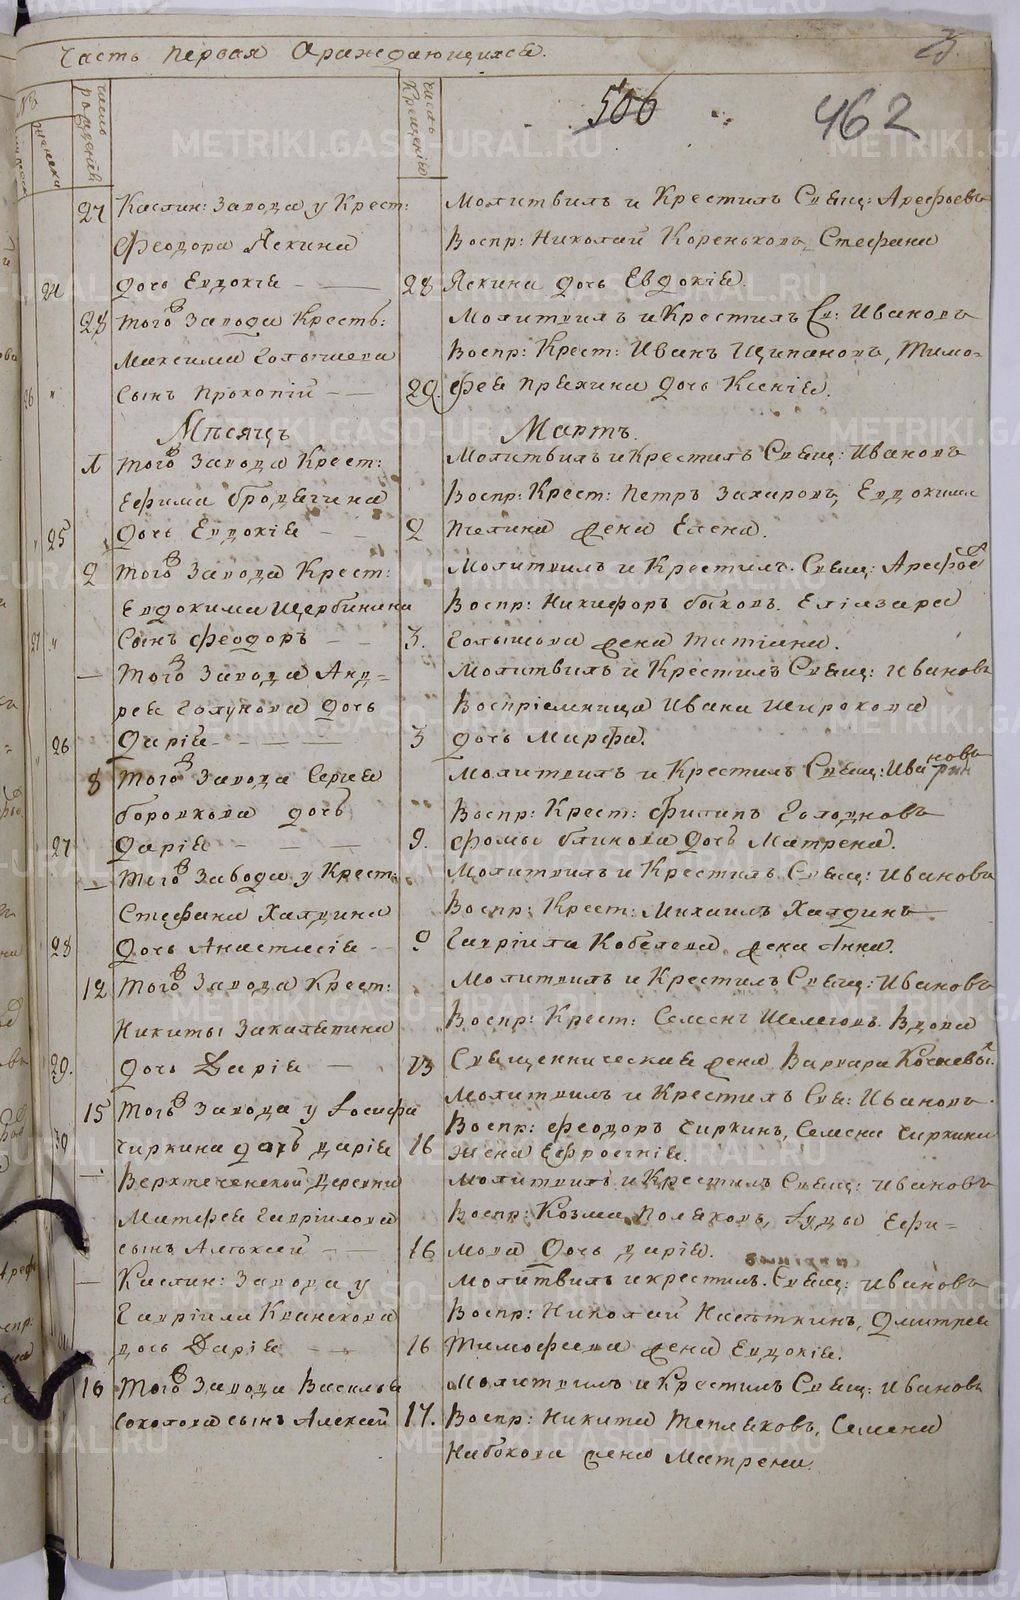 Часть первая О раждающихся.
3.
506
462
№
женска
число рождения
число Крещения
27 Каслин: Завода у Крест: Молитвилъ и Крестилъ Свящ: Арефьевъ
Феодора Яскина Воспр: Николай Кореньковъ, Стефана
24 дочь Евдокія 28 Яскина дочь Евдокія.
28 того Завода Кресть: Молитвилъ и Крестилъ Св: Ивановъ
Максима Голышева Воспр: Крест: Иванъ Щипановъ, Тимо-
26 " Сынъ Прокопій 29. фея Пряхина дочь Ксенія.
Мѣсяцъ Мартъ.
1 того Завода Крест: Молитвилъ и Крестилъ Свящ: Ивановъ
Ефима Бродягина Воспр: Крест: Петръ Захаровъ, Евдокима
25 дочь Евдокія 2 жена Елена.
2 того Завода Крест: Молитвилъ и Крестилъ. Свящ: Арефьев
Евдокима Щербинина Воспр: Никифоръ Быковъ. Еліазара
27 " Сынъ Феодоръ 3. Голышова жена Татіана.
— того Завода Анд- Молитвилъ и Крестилъ Свящ: Ивановъ
рея Голунова дочь Воспріемница Ивана Широкова
26 Дарія 3 дочь Марфа.
8 того Завода Сергея Молитвилъ и Крестилъ Свящ: Ивановъ
Боровкова дочь Воспр: Крест: Филипъ Голодновъ
27 Дарія 9. Фомы Блинова дочь Матрена.
— того Завода у Крест: Молитвилъ и Крестилъ Свящ: Ивановъ
Стефана Халдина Воспр: Крест: Михаилъ Халдинъ
28 дочь Анастасія 9 Гавріила Кобелева жена Анна.
12 того Завода Крест: Молитвилъ и Крестилъ Свящ: Ивановъ
Никиты Закаляпина Воспр: Крест: Семенъ Шелеговъ. Вдова
29. дочь Дарія 13 Священническая жена Варвара
15 того Завода у Іосифа Молитвилъ и Крестилъ Свя: Ивановъ.
Чиркина дочь Дарія 16 Воспр: Феодоръ Чиркинъ, Семена Чиркина
30 жена Ефросинія.
— Верхтеченской деревни Молитвилъ и Крестилъ Свящ: Ивановъ
Матфея Гавріилова Воспр: Козма Поляковъ, Іуды Ефи-
сынъ Алексей 16 мова дочь Дарія.
— Каслин: Завода у Молитвилъ и крестилъ. Свящ: Ивановъ
Гавріила Воспр: Николай Насѣткинъ, Дмитрея
дочь Дарія 16 Тимофеева жена Евдокія.
16 того Завода Василья Молитвилъ и Крестилъ Свящ: Ивановъ
Соколова сынъ Алексей 17. Воспр: Никита Тепляковъ, Семена
Набокова жена Матрена.